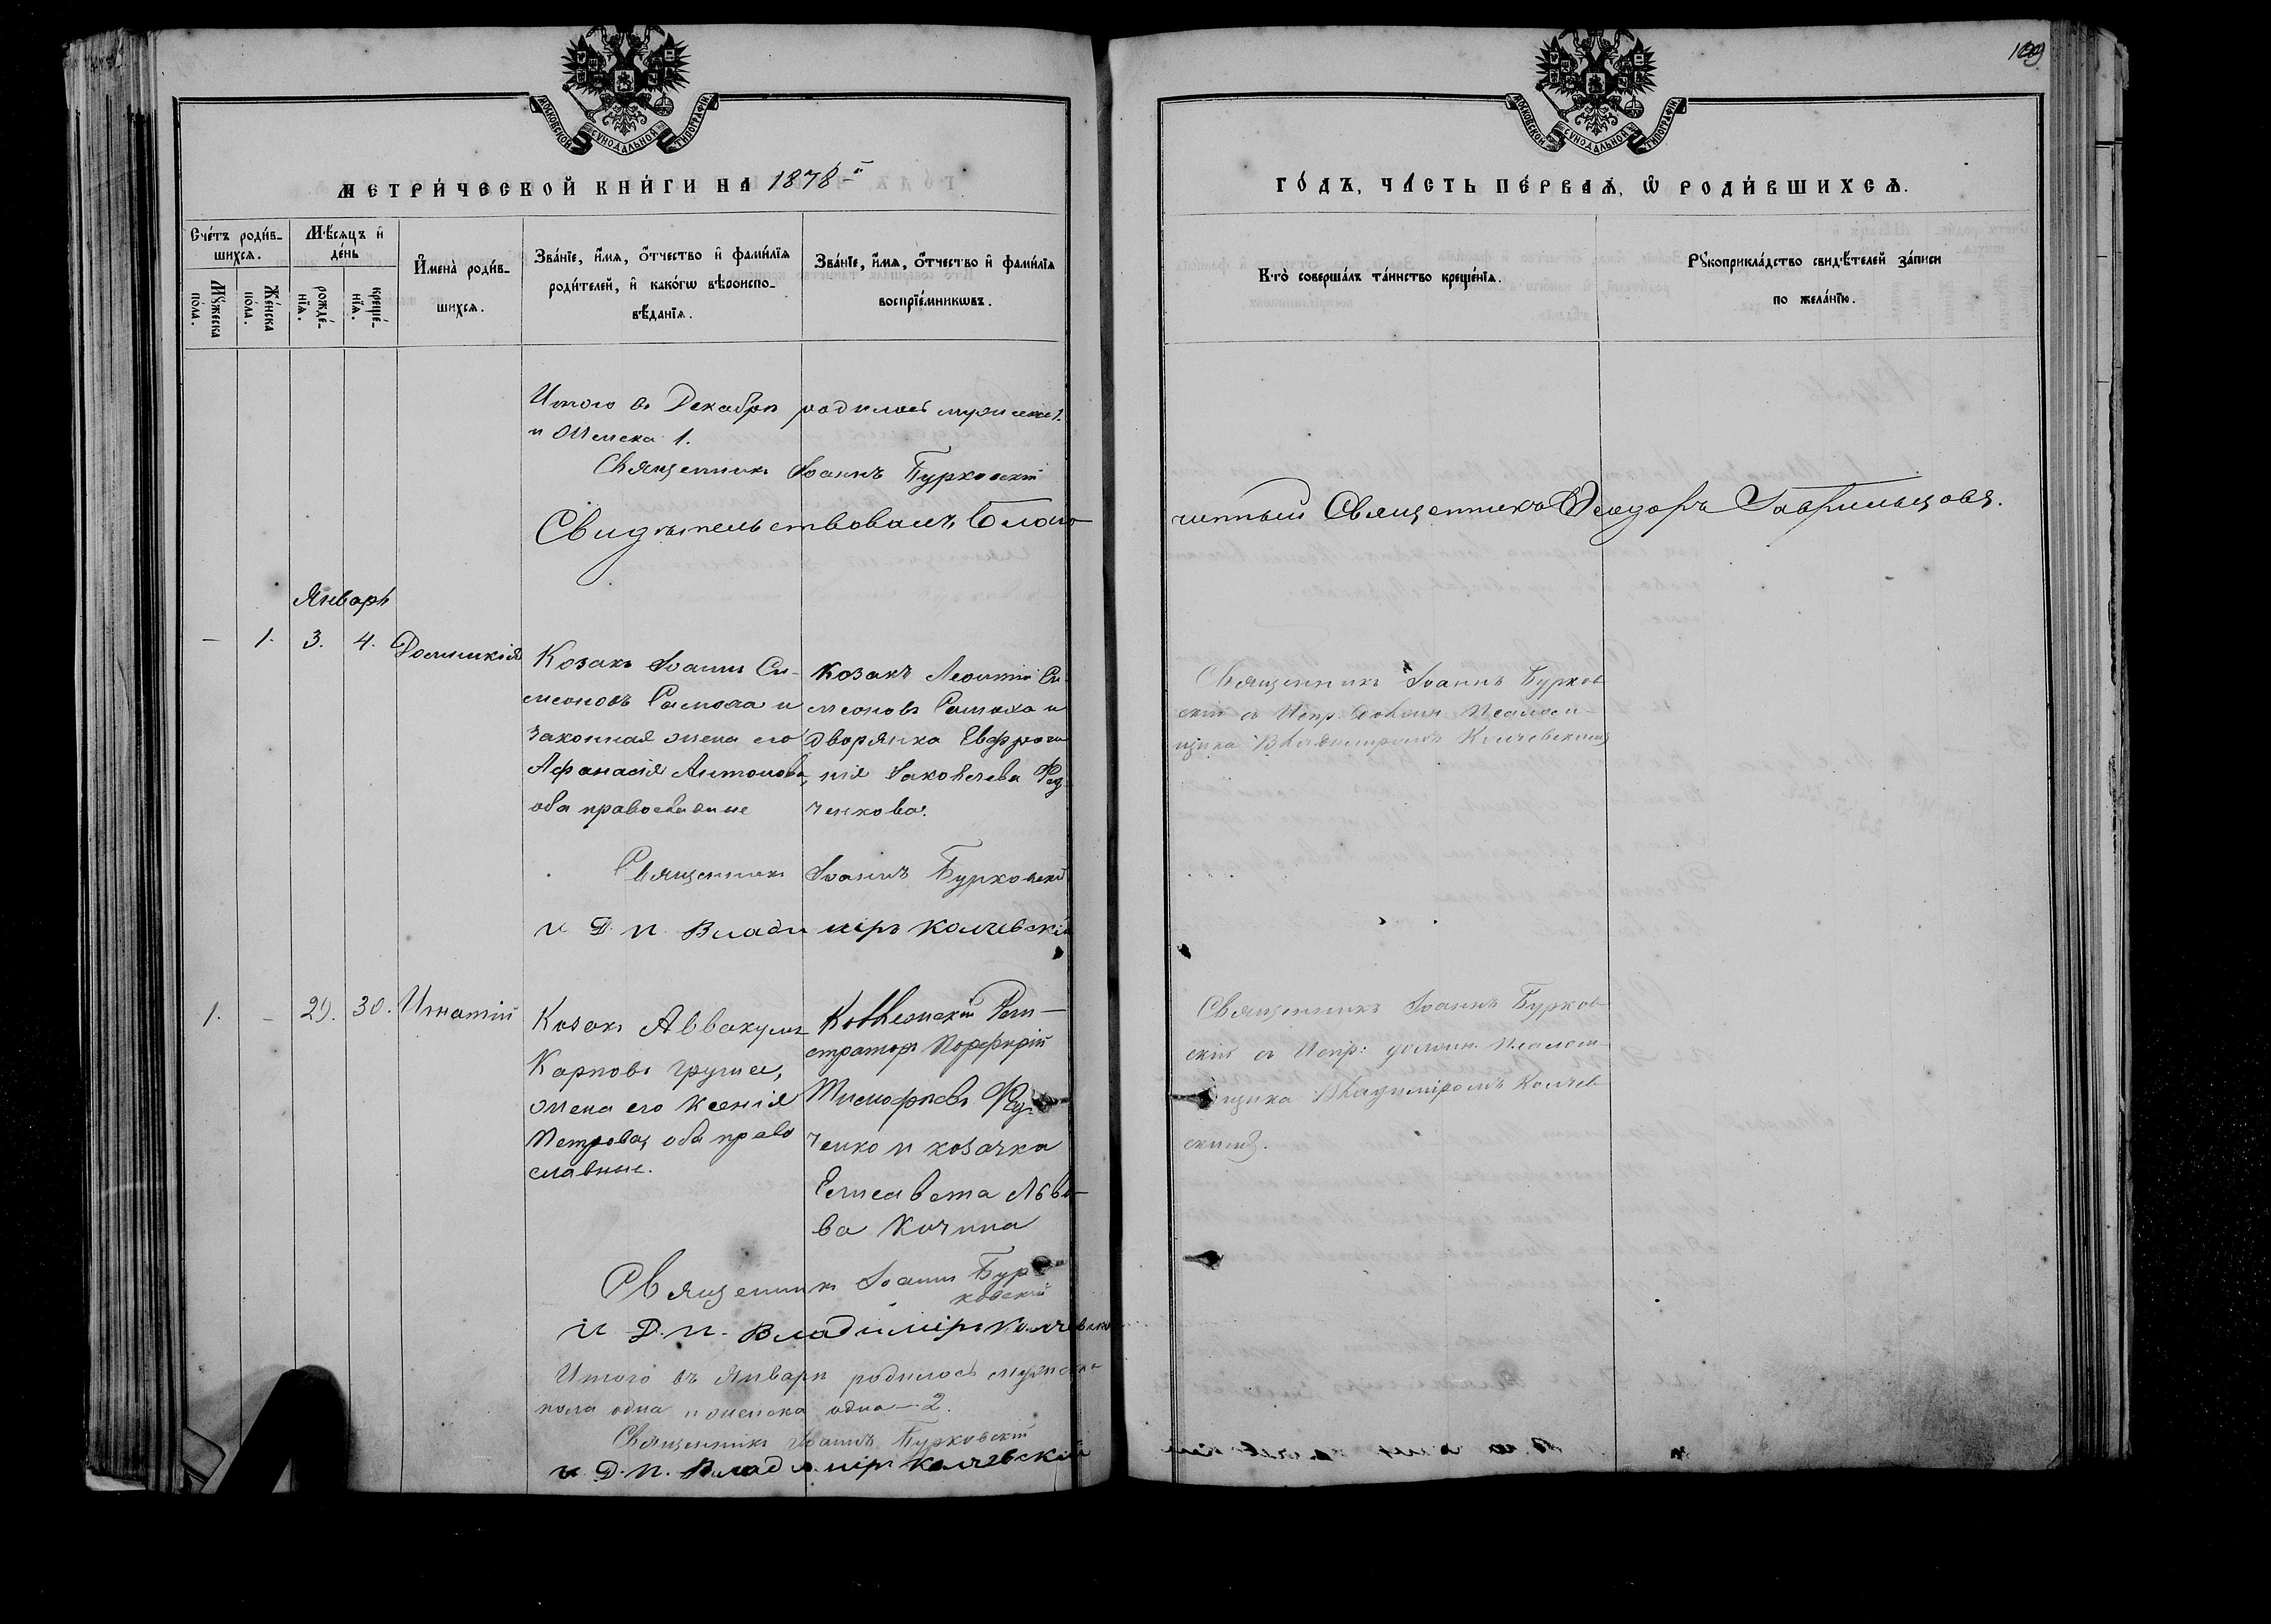 МОСКОВСКОЙ СУНОДАЛЬНОЙ ТИПОГРАФІИ
МЕТРИ́ЧЕСКОЙ КНИ́ГИ НА 1878-й
Сче́тъ роди́в-
шихсѧ.
Мꙋ́жеска по́ла.
Же́нска по́ла.
Мѣ́сѧцъ и҆ де́нь
рожде́-
нїѧ.
креще́-
нїѧ.
И҆мена̀ роди́в-
шихсѧ.
Зва́нїе, и҆́мѧ, ѻ҆́тчество и҆ фами́лїѧ
роди́телей, и҆ како́гѡ вѣроиспо-
вѣ́данїѧ.
Зва́нїе, и҆́мѧ, ѻ҆́тчество и҆ фами́лїѧ
воспрїе́мникѡвъ.
Итого въ Декабрѣ родилось мужеска 1.
и Женска 1.
Священникъ Іоаннъ Бурковскій
Свидѣтельствовалъ Благо-
Январь
— 1. 3. 4. Домникія
Козакъ Іоаннъ Си-
меоновъ Самоха и
законная жена его
Афанасія Антонова,
оба православные
Козакъ Леонтій Си-
меоновъ Самоха и
дворянка Евфроси
нія Іаковлева Фед-
ченкова.
Священникъ Іоаннъ Бурковскій
и Д. П. Владиміръ Колчевскій
1. — 29. 30. Игнатій
Козакъ Аввакумъ
Карповъ Груша,
жена его Ксенія
Петрова, оба право
славные.
Коллежскій Реги-
страторъ Порфирій
Тимофѣевъ
ченко и козачка
Елисавета Льво-
ва Кочина
Священникъ Іоаннъ Бур-
ковскій
и Д. П. Владиміръ Колчевскій
Итого въ Январѣ родилось мужеска
пола одна и женска одна — 2.
Священникъ Іоаннъ Бурковскій
и Д. П. Владиміръ Колчевскій
МОСКОВСКОЙ СУНОДАЛЬНОЙ ТИПОГРАФІИ
ГО́ДЪ, ЧА́СТЬ ПЕ́РВАѦ, Ѡ҆ РОДИ́ВШИХСѦ.
Кто̀ соверша́лъ та́инство креще́нїѧ.
Рꙋкоприкла́дство свидѣ́телей за́писи
по жела́нїю.
чинный Священникъ Ѳеодоръ Гаврильцовъ.
Священникъ Іоаннъ Бурков
скій съ Испр. должн. Псалом-
щика Владиміромъ Колчевскимъ
Священникъ Іоаннъ Бурков-
скій съ Испр: должн. Псалом-
щика Владиміромъ Колчев-
скимъ.